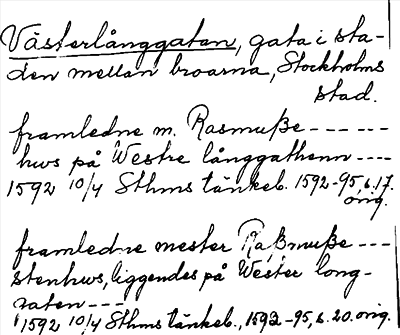 Västerlånggatan, gata i sta-
den mellan broarna, Stockholms
stad.
framledne m. Rasmuße - - - - -
hws på Westre långgathenn - - - -
1592 10/4 Sthms tänkeb. 1592-95, s. 17.
orig.
framledne mester Raßmuße - - -
stenhws, liggendes på Wester long-
naten - - -
1592 10/4 Sthms tänkeb., 1592-95, s. 20. orig.